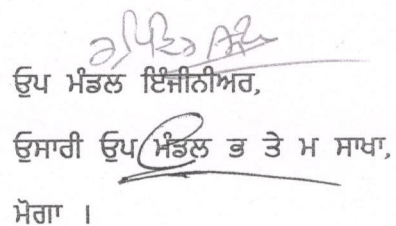 ਉਪ ਮੰਡਲ ਇੰਜੀਨੀਅਰ,
ਉਸਾਰੀ ਉਪ ਮੰਡਲ ਭ ਤੇ ਮ ਸਾਖਾ,
ਮੋਗਾ ।